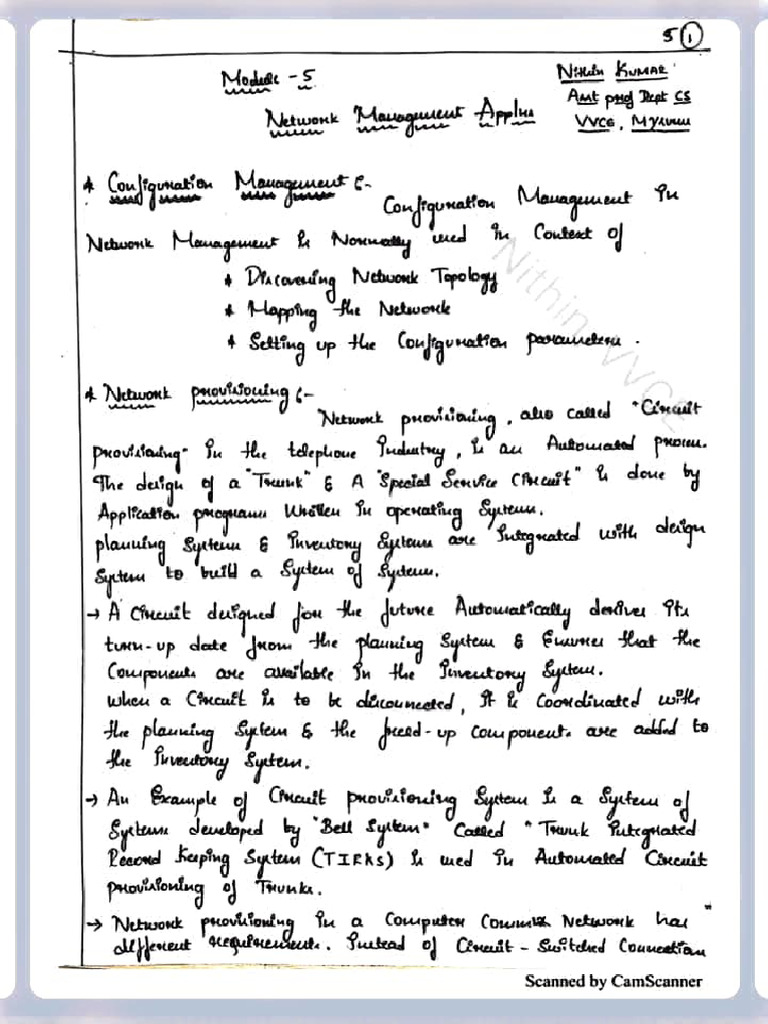 5 1
Module - 5
Nithin Kumar
Asst prof Dept CS
VVCE, Mysuru
Network Management Applns
* Configuration Management :-
Configuration Management in
Network Management is Normally used in Context of
* Discovering Network Topology
* Mapping the Network
* Setting up the Configuration parameters.
* Network provisioning :-
Network provisioning, also called "Circuit
provisioning" in the telephone Industry, is an Automated process.
The design of a "Trunk" & A "Special Service Circuit" is done by
Application programs Written in operating Systems.
planning Systems & Inventory Systems are Integrated with design
System to build a System of Systems.
→ A Circuit designed for the future Automatically derives its
turn-up date from the planning System & Ensures that the
Components are available in the Inventory System.
When a Circuit is to be disconnected, it is Coordinated with
the planning System & the freed-up components are added to
the Inventory System.
→ An Example of Circuit provisioning System is a System of
Systems developed by "Bell System" Called "Trunk Integrated
Record Keeping System (TIRKS) is used in Automated Circuit
provisioning of Trunks.
→ Network provisioning in a Computer Commn Network has
different requirements. Instead of Circuit - Switched Connection
Nithin VVCE
Scanned by CamScanner